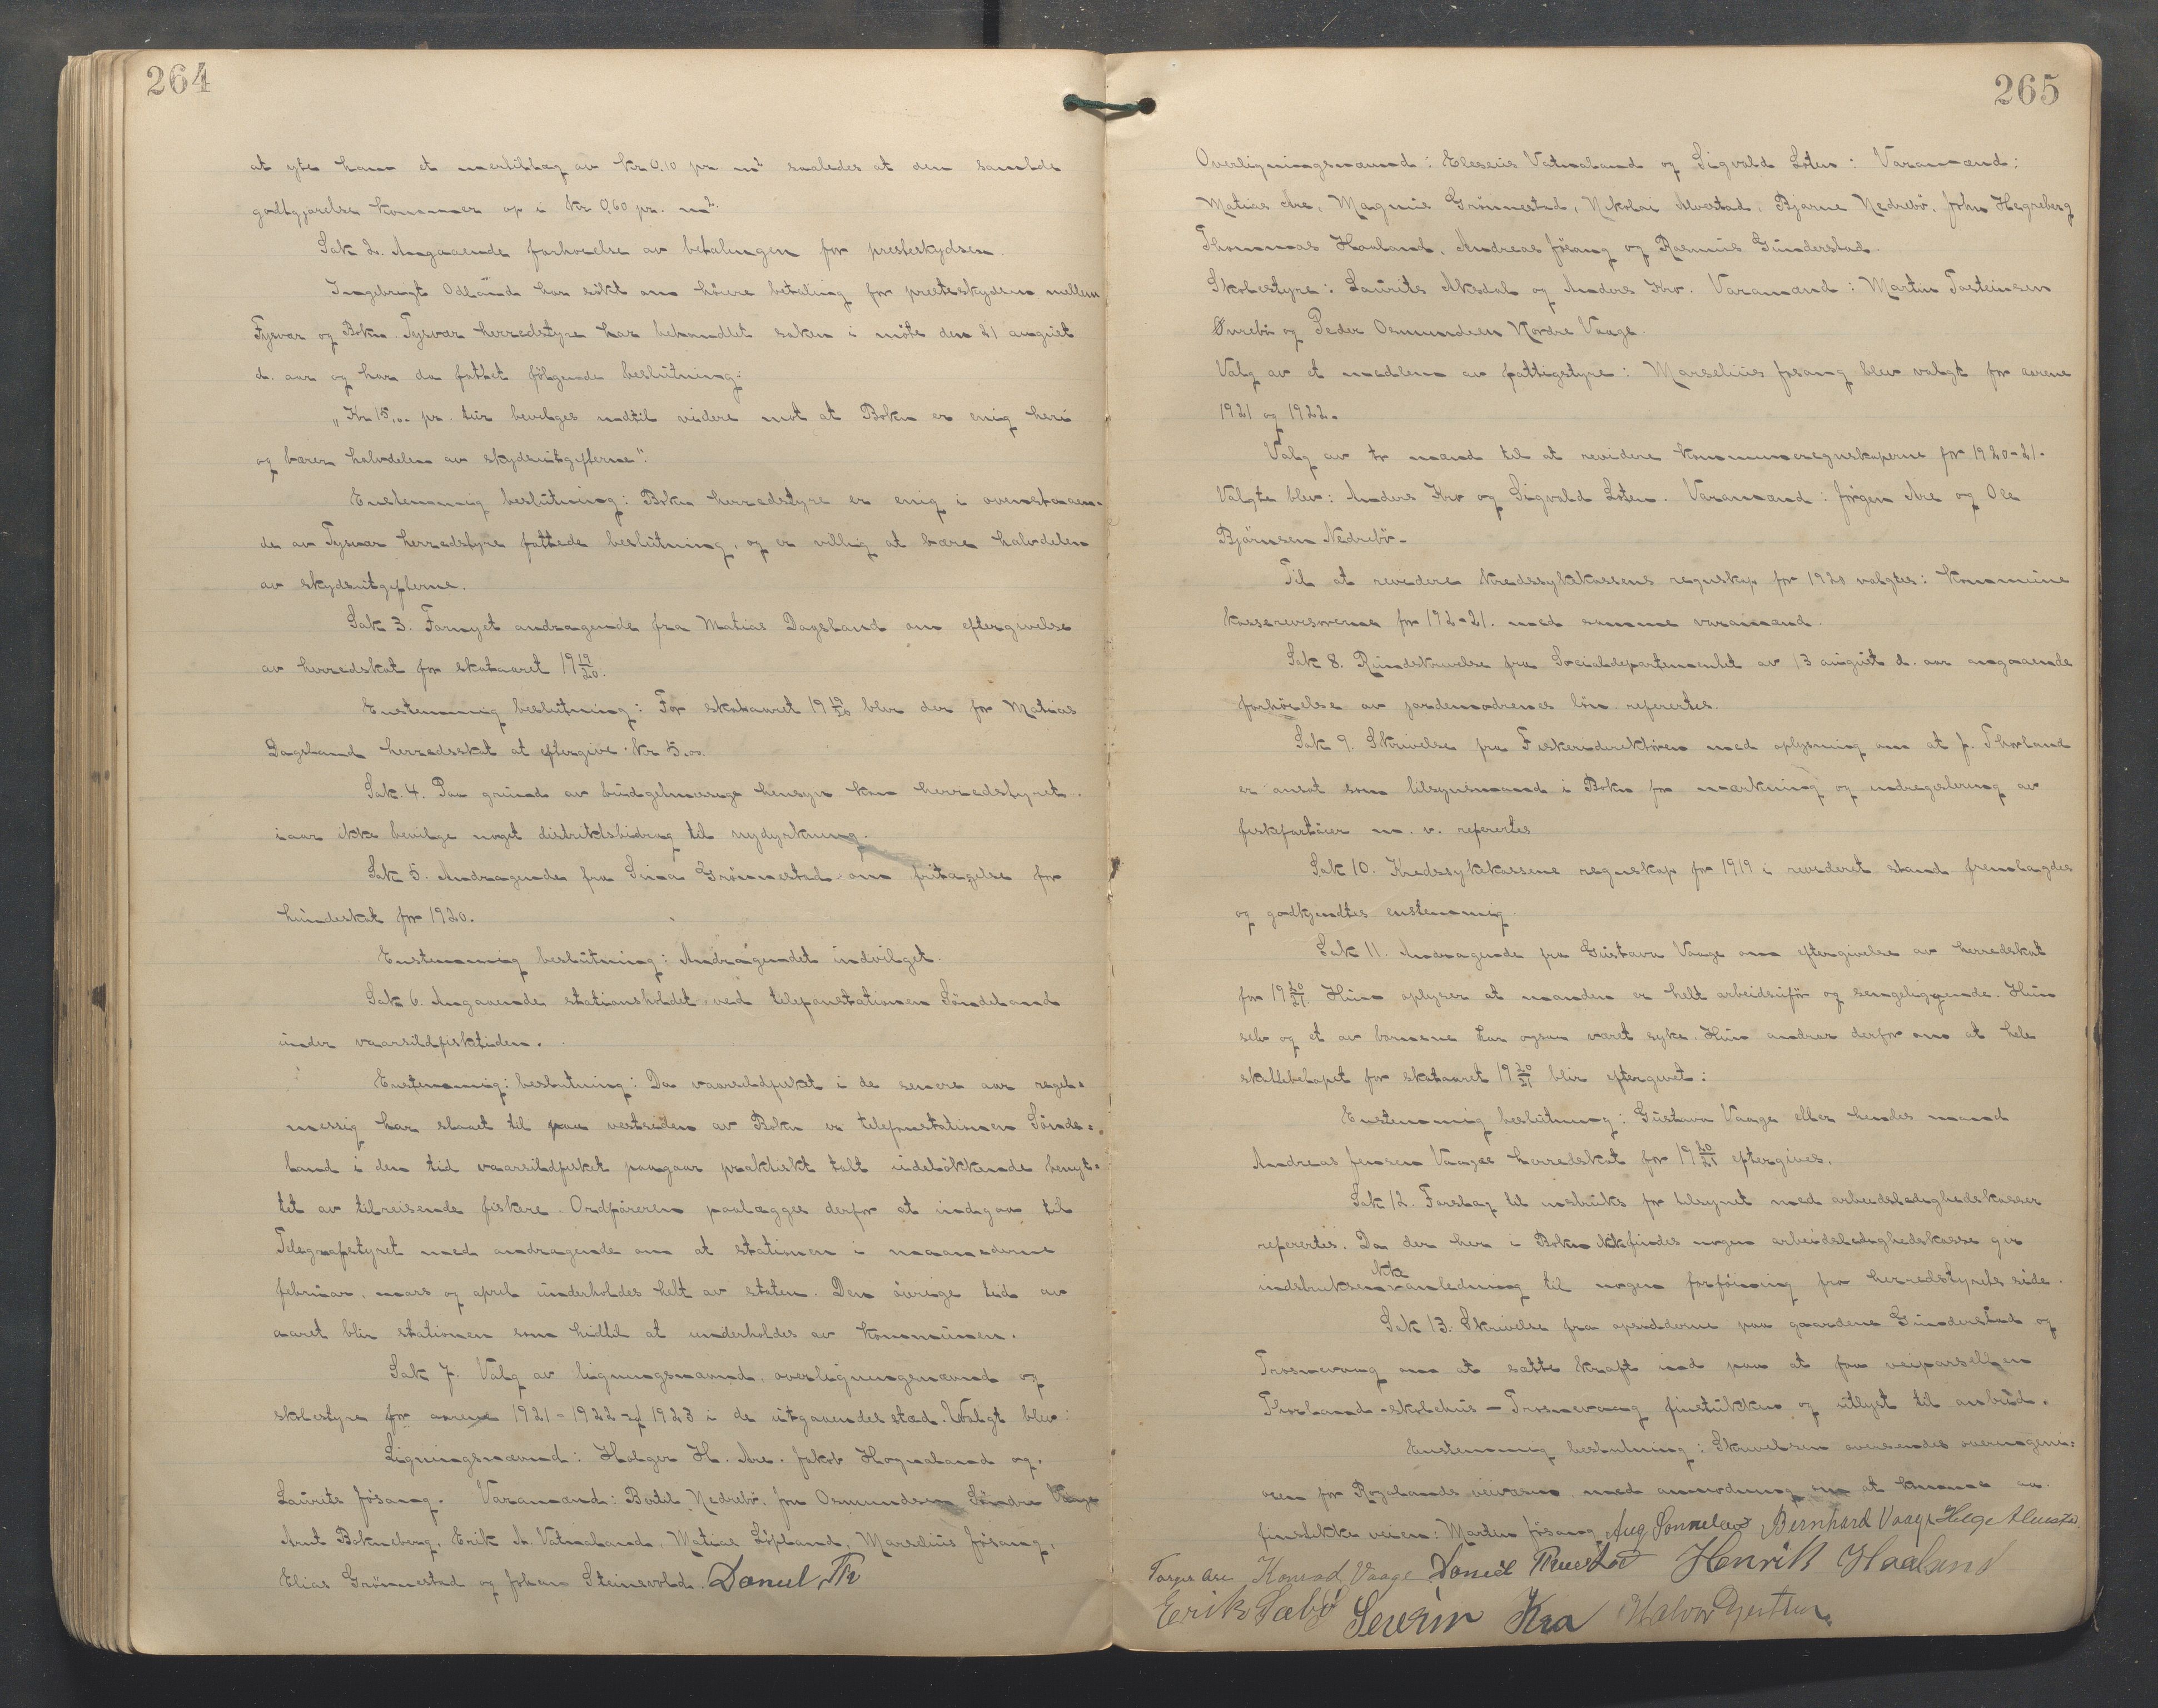 264
at yte ham et mertillæg av kr 0,10 pr m² saaledes at den samlede
godtgjørelse kommer op i kr 0,60 pr. m².
Sak 2. Angaaende forhøielse av betalingen for presteskydsen.
Ingebregt Odland har søkt om høiere betaling for presteskydsen mellem
Tysvær og Bokn. Tysvær herredstyre har behandlet saken i møte den 21 august
d. aar og har da fattet følgende beslutning:
„Kr 15,00 pr. tur bevilges indtil videre mot at Bokn er enig heri
og bærer halvdelen av skydsutgifterne".
Enstemmig beslutning: Bokn herredstyre er enig i ovenstaaen-
de av Tysvær herredstyre fattede beslutning, og er villig at bære halvdelen
av skydsutgifterne.
Sak 3. Fornyet andragende fra Matias Dagsland om eftergivelse
av herredskat for skataaret 19 19/20.
Enstemmig beslutning: For skataaret 19 19/20 blir der for Matias
Dagsland herredsskat at eftergive kr 5.00.
Sak 4. Paa grund av budgetmæssige hensyn kan herredstyret
iaar ikke bevilge noget distriktsbidrag til nydyrkning.
Sak 5. Andragende fra Sina Grønnestad om fritagelse for
hundeskat for 1920.
Enstemmig beslutning: Andragendet indvilget.
Sak 6. Angaaende stationsholdet ved telefonstationen Søndeland
under vaarsildfisketiden.
Enstemmig: beslutning: Da vaarsildfisket i de senere aar regel-
messig har slaaet til paa vestsiden av Bokn er telefonstationen Sønde-
land i den tid vaarsildfisket paagaar praktiskt talt udelukkende benyt-
tet av tilreisende fiskere. Ordføreren paalægges derfor at indgaa til
Telegrafstyret med andragende om at stationen i maanederne
februar, mars og april underholdes helt av staten. Den øvrige tid av
aaret blir stationen som hidtil at underholdes av kommunen.
Sak 7. Valg av ligningsnævnd, overligningsnævnd og
skolestyre for aarene 1921-1922 og 1923 i de utgaaendes sted. Valgt blev:
Ligningsnævnd: Holger H. Are. Jakob Hognaland og
Laurits Jøsang. Varamænd: Bertel Nedrebø, Jon Osmundsen Søndre Vaage
Arnt Bokneberg, Erik A. Vatnaland, Matias Løfland, Marselius Jøsang,
Elias Grønnestad og Johan Steinsvold. Daniel Th
265
Overligningsnævnd: Eleseus Vatnaland og Sigvald Loten: Varamænd:
Matias Are, Magnus Grønnestad, Nikolai Alvestad, Bjarne Nedrebø, John Hegreberg
Thommas Haaland, Andreas Jøsang og Rasmus Gunderstad.
Skolestyre: Laurits Aksdal og Anders Kro. Varamænd: Martin Tosteinsen
Øvrebø og Peder Osmundsen Nordre Vaage.
Valg av et medlem av fattigstyre: Marselius Jøsang blev valgt for aarene
1921 og 1922.
Valg av to mænd til at revidere kommuneregnskaperne for 1920-21.
Valgte blev: Anders Kro og Sigvald Loten. Varamænd: Jørgen Are og Ole
Bjørnsen Nedrebø.
Til at revidere kredssykekassens regnskap for 1920 valgtes: kommune
kasserevisorerne for 192-21. med samme varamænd.
Sak 8. Rundskrivelse fra Socialdepartementet av 13 august d. aar angaaende
forhøielse av jordemødrenes løn refertes.
Sak 9. Skrivelse fra Fiskeridirektøren med oplysning om at J. Thorland
er ansat som tilsynsmand i Bokn for mærkning og indregistrering av
fiskefartøier m. v. refertes
Sak 10. Kredssykekassens regnskap for 1919 i revideret stand fremlagdes
og godkjendtes enstemmig.
Sak 11. Andragende fra Gustava Vaage om eftergivelse av herredskat
for 19 20/21. Hun oplyser at manden er helt arbeidsufør og sengeliggende. Hun
selv og et av barnene har ogsaa været syke. Hun andrar derfor om at hele
skattebeløpet for skataaret 19 20/21 blir eftergivet:
Enstemmig beslutning: Gustava Vaage eller hendes mand
Andreas Jensen Vaages herredskat for 19 20/21 eftergives.
Sak 12. Forslag til instruks for tilsynet med arbeidsledighedskasser
refertes. Da der her i Bokn ikke findes nogen arbeidsledighedskasse gir
indstruksen ikke anledning til nogen forføining fra herredstyrets side.
Sak 13. Skrivelse fra opsidderne paa gaardene Gunderstad og
Trosnevaag om at sætte kraft ind paa at faa veiparsellen
Thorland-skolehus - Trosnevaag finstukken og utlyst til anbud.
Enstemmig beslutning: Skrivelsen oversendes overingeni-
øren for Rogalands veivæsen med anmodning om at komme av
finstikke veien: Martin Jøsang Aug Sonnelær Bernhard Vaage Helge Alvestad
Torger Are Konrad Vaage Daniel Henrik Haaland
Erik Sæbø Severin Kro Halvor